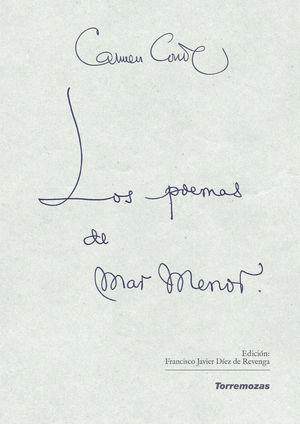 Carmen Conde
Los poemas
de
Mar Menor.
Edición:
Francisco Javier Díez de Revenga
Torremozas